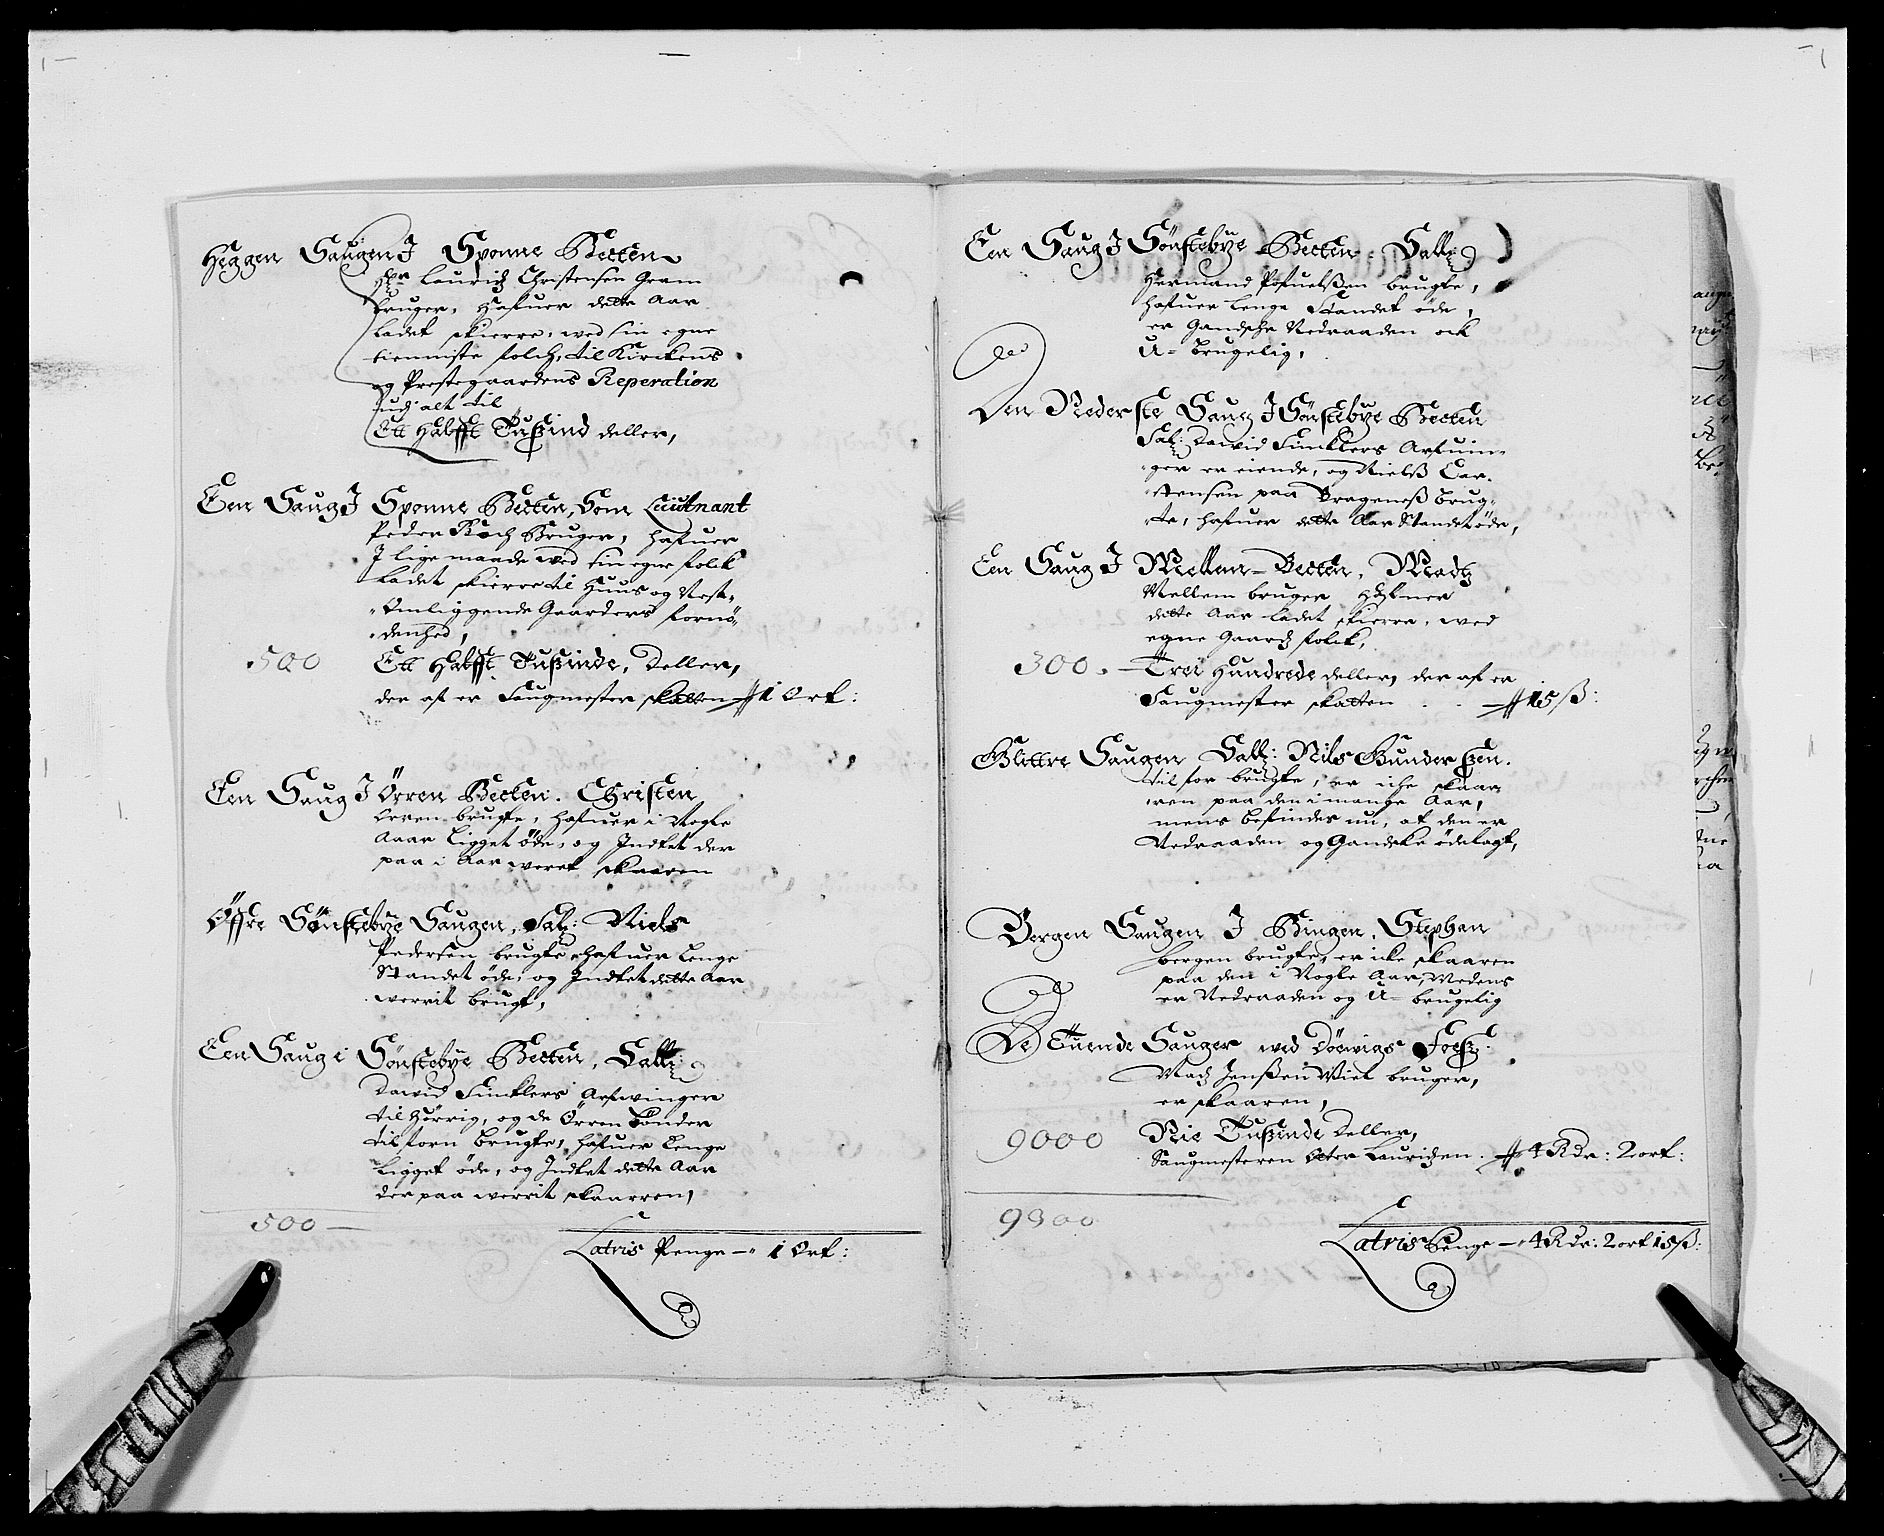 Heggen Saugen J Sponne Becken
Hr Lauridz Christensen Gram
bruger, hafuer dette Aar
ladet skierre, wed sin egne
tienniste folch, til Kirckens
og Prestegaardens Reperation
udj alt til
Ett Halfft Tußind deller,
Een Saug J Sponne Becken, Som Liutnant
Peder Koch Bruger, hafuer
J lige maade wed sin egne folck
Ladet skierre til Huus og Nest-
Omliggende Gaarders fornø-
denhed,
500 Ett Halfft Tußinde, Deller,
der af er Saugmester skatten 1 Ort:
Een Saug J Örren Becken. Christen
Orren brugte, hafuer i Nogle
Aaar Ligget öde, og Jndtet der
paa i Aar weret skaaren
Öffre Sönstebÿe Saugen, Sal: Niels
Pedersen brugte hafuer Lenge
Standet öde, og Jndtet dette Aar
werrit brugt,
Een Saug i Sönstebÿe Becken, Salli:
Dawid Sinklers Arfwinger
tilhörrig, og de Örren Bönder
tilforn brugte, hafuer Lenge
Ligget öde, og Jndtet dette Aar
der paa werrit skaarren,
500
Latris Penge 1 Ort:
Een Saug J Sönstebÿe Becken, Salli:
Hermand Pofuelßen brugte,
hafuer lenge Standet öde,
er Gandsche Nedraaden ock
U-brugelig,
Den Nederste Saug J Sönstebÿe Becken
Sal: Dawid Sinklers Arfuin-
ger er eiende, og Nielß Car-
stensen paa Bragenes brug-
te, hafuer dette Aar Standet öde,
Een Saug J Mellem-Becken, Madz
Mellem bruger hafuer
dette Aar ladet skierre, wed
egne Gaardz folck,
300. Trei Hundrede deller, der af er
Saugmester skatten 15 ß:
Blittre Saugen Salli: Nils Gunderßen
tilfor brugte, er iche skaar-
ren paa den i mange Aar,
mens befindes nu, at den er
Nedraaden og Gandske ödelagt,
Bergen Saugen J Bingen, Stephan
bergen brugte, er icke skaaren
paa den i Nogle Aar, Medens
er Nedraaden og U-brugelig
De Tuende Sauger wed Döewigs Foeß.
Madz Jenßen Wiel bruger,
er skaaren,
9000 Nie Tußende Deller,
Saugmesteren Otter Lauridzen. 4 Rdr: 2 ort:
9300
Latris Penge 4 Rdr: 2 ort 15 ß: